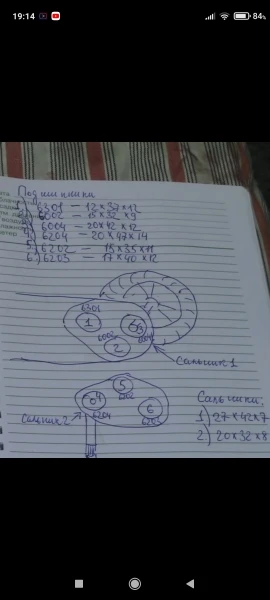 19:14
84%
Подшипники
1.) 6301 — 12×37×12
2.) 6002 — 15×32×9
3.) 6004 — 20×42×12
4.) 6204 — 20×47×14
5.) 6202 — 15×35×11
6.) 6203 — 17×40×12
6301
1
6002
2
3
6004
Сальник 1
5
6202
4
6204
6
6203
Сальник 2
Сальники,
1.) 27×42×7
2.) 20×32×8